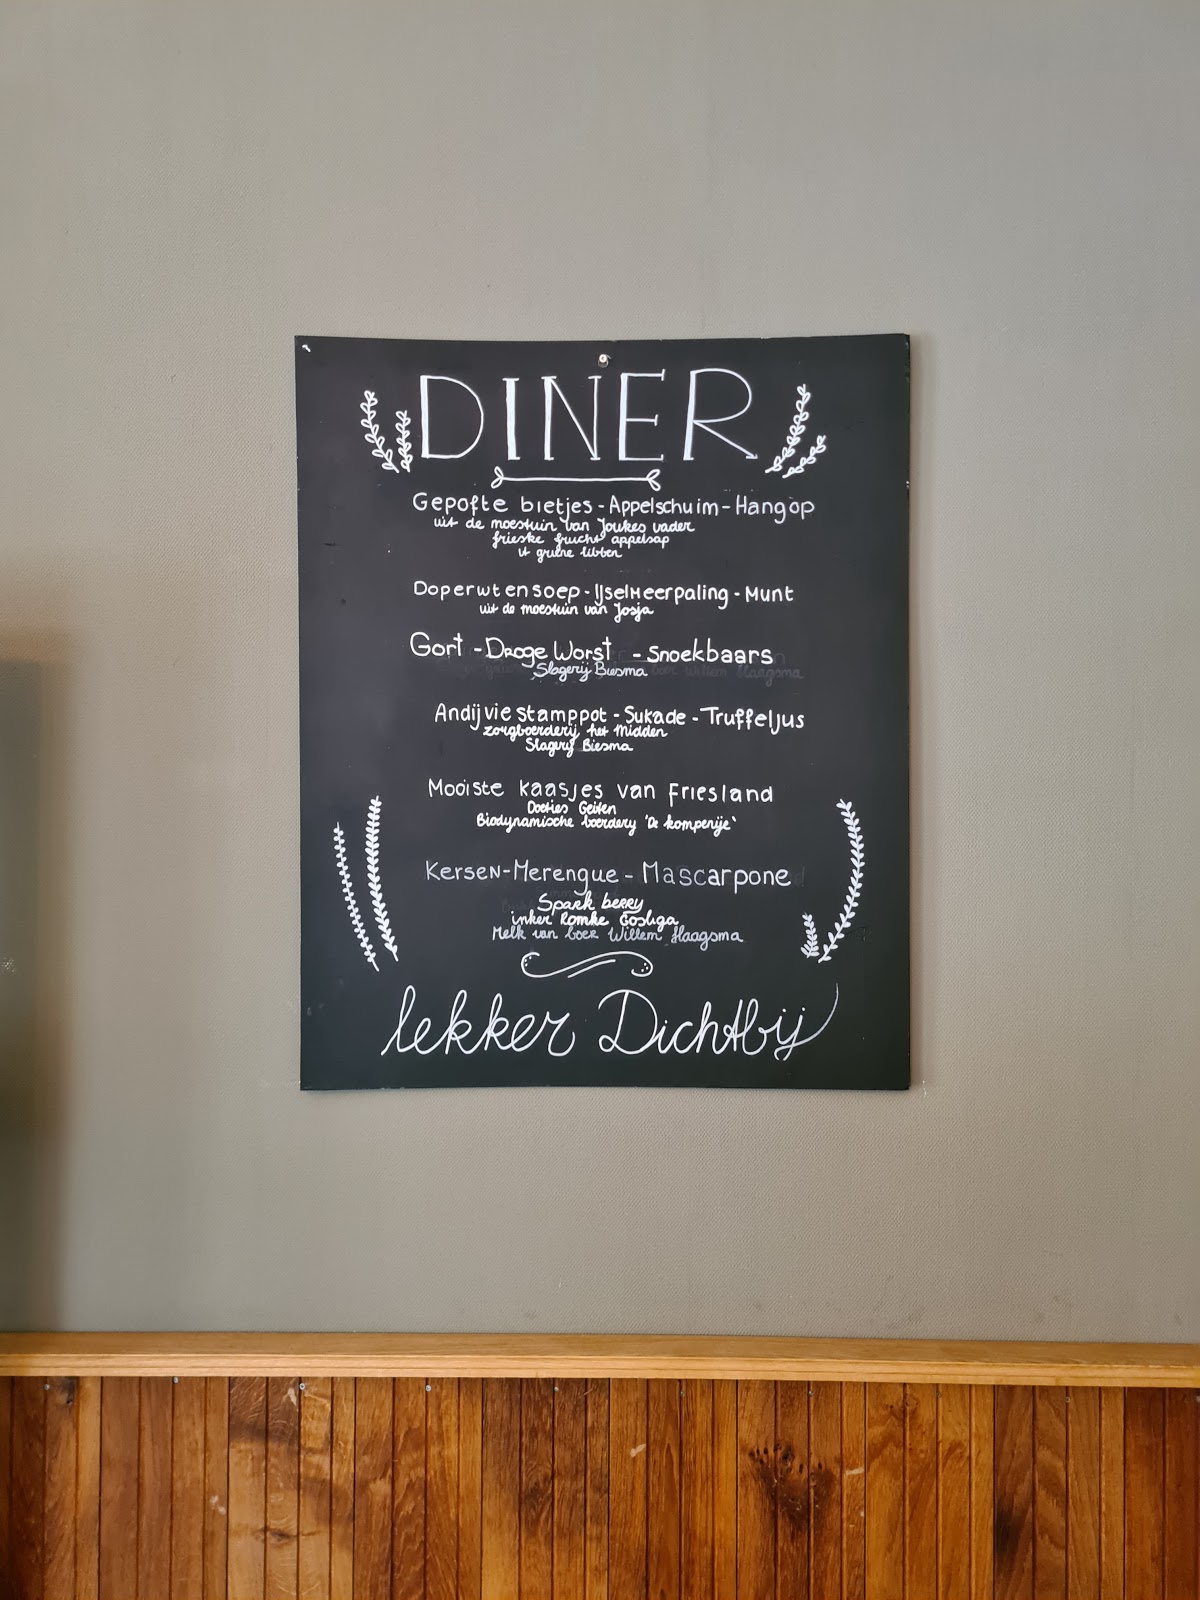 DINER
Gepofte bietjes - Appelschuim - Hangop
uit de moestuin van Joukes vader
frieske frucht appelsap
it griene libben
Doperwtensoep - IJselmeerpaling - Munt
uit de moestuin van Josja
Gort - Droge Worst - Snoekbaars
Slagerij Biesma
Andijvie stamppot - Sukade - Truffeljus
zorgboerderij het Midden
Slagerij Biesma
Mooiste kaasjes van Friesland
Doeties Geiten
Biodynamische boerdery 'De komperije'
Kersen - Merengue - Mascarpone
Spark berry
imker Romke Gosliga
Melk van boer Willem Haagsma
lekker Dichtbij